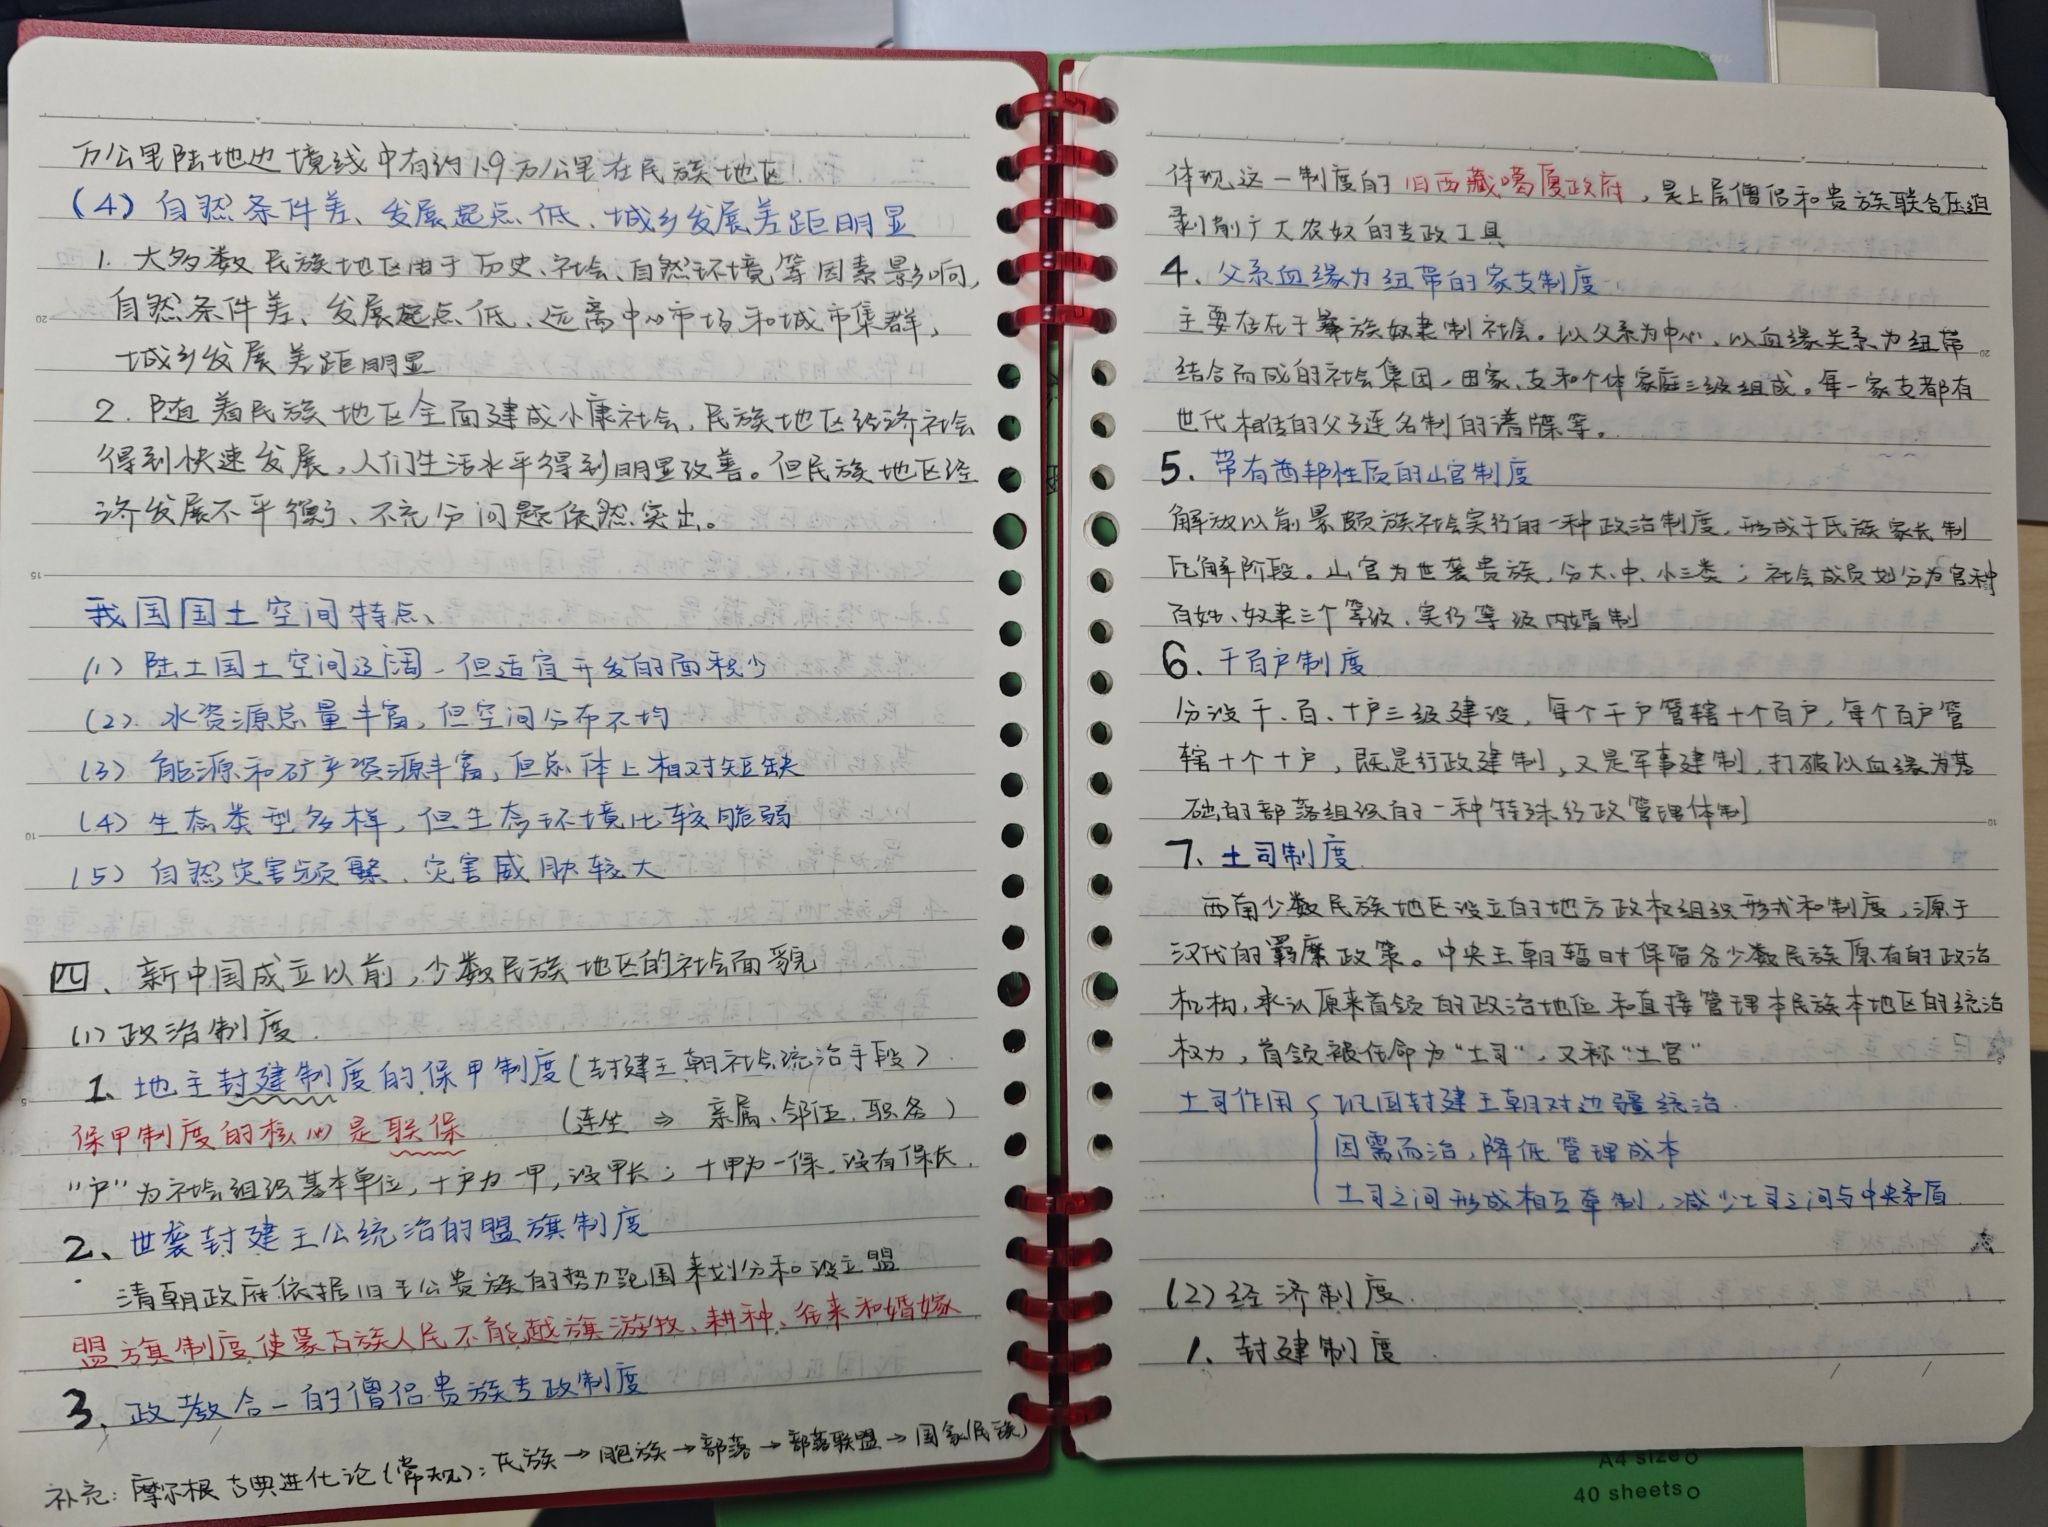 万公里陆地边境线中有约1.9万公里在民族地区
(4) 自然条件差、发展起点低、城乡发展差距明显
1. 大多数民族地区由于历史、社会、自然环境等因素影响,
自然条件差、发展起点低、远离中心市场和城市集群,
城乡发展差距明显
2. 随着民族地区全面建成小康社会,民族地区经济社会
得到快速发展,人们生活水平得到明显改善。但民族地区经
济发展不平衡、不充分问题依然突出。
我国国土空间特点、
(1) 陆土国土空间辽阔、但适宜开发的面积少
(2) 水资源总量丰富,但空间分布不均
(3) 能源和矿产资源丰富,但总体上相对短缺
(4) 生态类型多样,但生态环境比较脆弱
(5) 自然灾害频繁、灾害威胁较大
四、新中国成立以前,少数民族地区的社会面貌
(1) 政治制度
1、地主封建制度的保甲制度(封建王朝社会统治手段)
保甲制度的核心是联保 (连坐 ⇒ 亲属、邻伍、职务)
"户"为社会组织基本单位,十户为一甲,设甲长;十甲为一保,设有保长.
2、世袭封建王公统治的盟旗制度
清朝政府依据旧王公贵族的势力范围来划分和设立盟
盟旗制度使蒙古族人民不能越旗游牧、耕种、往来和婚嫁
3、政教合一的僧侣贵族专政制度
补充: 摩尔根古典进化论(常规): 氏族→胞族→部落→部落联盟→国家(民族)
体现这一制度的旧西藏噶厦政府,是上层僧侣和贵族联合压迫
剥削广大农奴的专政工具
4、父系血缘为纽带的家支制度
主要存在于彝族奴隶制社会。以父系为中心,以血缘关系为纽带
结合而成的社会集团,由家、支和个体家庭三级组成。每一家支都有
世代相传的父子连名制的谱牒等。
5、带有酋邦性质的山官制度
解放以前景颇族社会实行的一种政治制度,形成于氏族家长制
瓦解阶段。山官为世袭贵族,分大、中、小三类;社会成员划分为官种
百姓、奴隶三个等级、实行等级内婚制
6、千百户制度
分设千、百、十户三级建设,每个千户管辖十个百户,每个百户管
辖十个十户,既是行政建制,又是军事建制,打破以血缘为基
础的部落组织的一种特殊行政管理体制
7、土司制度
西南少数民族地区设立的地方政权组织形式和制度,源于
汉代的羁縻政策。中央王朝暂时保留各少数民族原有的政治
机构,承认原来首领的政治地位和直接管理本民族本地区的统治
权力,首领被任命为"土司",又称"土官"
土司作用 { 巩固封建王朝对边疆统治
因需而治,降低管理成本
土司之间形成相互牵制,减少土司之间与中央矛盾
(2) 经济制度
1、封建制度
A4 size
40 sheets